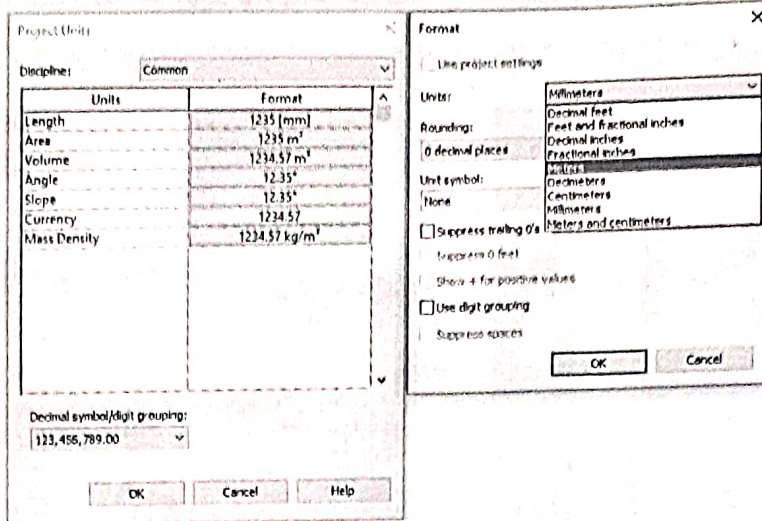 Project Units
Discipline:
Common
Units
Format
Length
1235 [mm]
Area
1235 m²
Volume
1234.57 m³
Angle
12.35°
Slope
12.35°
Currency
1234.57
Mass Density
1234.57 kg/m³
Decimal symbol/digit grouping:
123,456,789.00
OK
Cancel
Help
Format
Use project settings
Units:
Millimeters
Decimal feet
Feet and fractional inches
Decimal inches
Fractional inches
Decimeters
Centimeters
Millimeters
Meters and centimeters
Rounding:
0 decimal places
Unit symbol:
None
Suppress trailing 0's
Suppress 0 feet
Show + for positive values
Use digit grouping
Suppress spaces
OK
Cancel